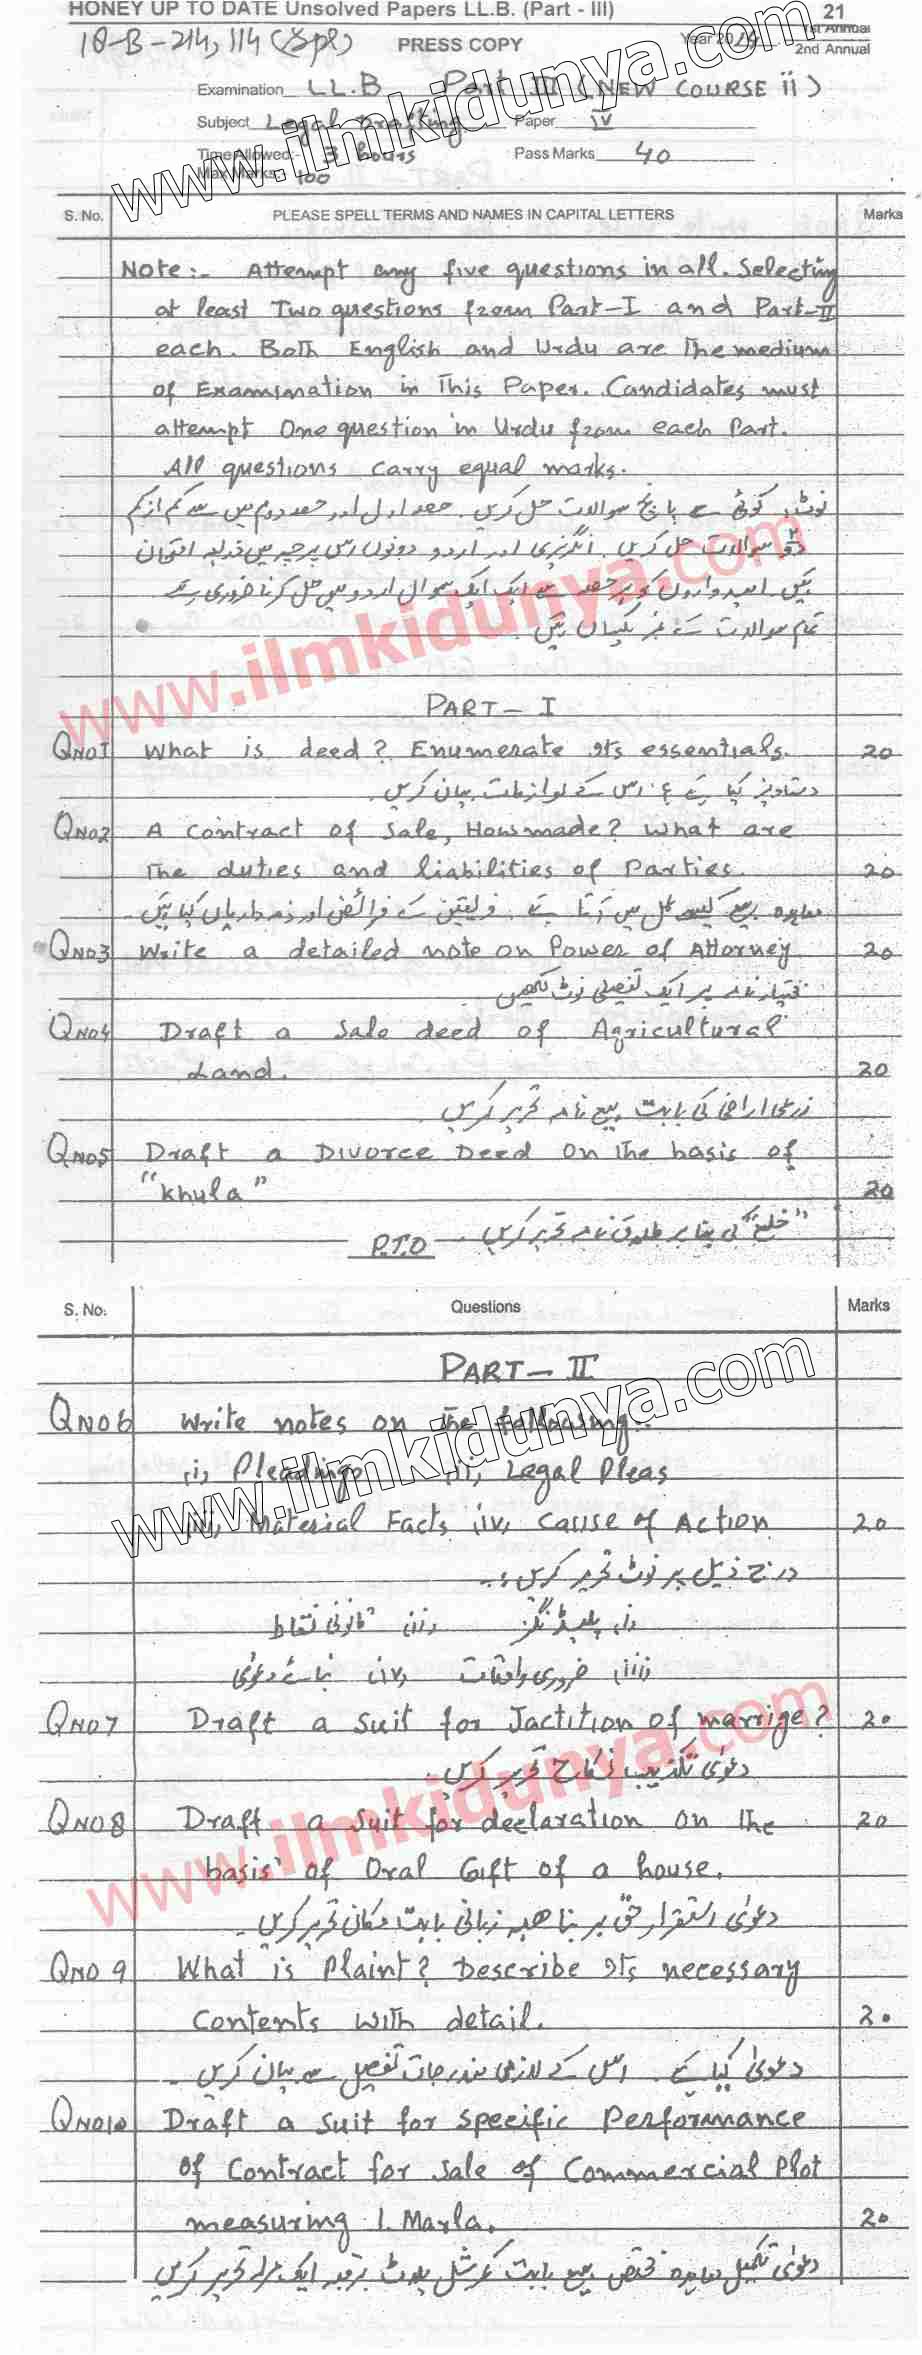 HONEY UP TO DATE Unsolved Papers LL.B. (Part - III)
21
18-B-214, 114 (Spl)
PRESS COPY
Year 2014
1st Annual
2nd Annual
Examination LL.B Part III (NEW COURSE ii)
Subject Legal Drafting Paper IV
Time Allowed:- 3 hours Pass Marks 40
Max Marks:- 100
S. No. PLEASE SPELL TERMS AND NAMES IN CAPITAL LETTERS Marks
Note:- Attempt any five questions in all. Selecting
at least Two questions from Part-I and Part-II
each. Both English and Urdu are The medium
of Examination in This Paper. Candidates must
attempt One question in Urdu from each Part.
All questions carry equal marks.
نوٹ: کوئی سے پانچ سوالات حل کریں۔ حصہ اول اور حصہ دوم میں سے کم از کم
دو سوالات حل کریں۔ انگریزی اور اردو دونوں اس پرچہ میں ذریعہ امتحان
ہیں۔ امیدواروں کو ہر حصہ سے ایک ایک سوال اردو میں حل کرنا ضروری ہے
تمام سوالات کے نمبر یکساں ہیں۔
PART-I
QNO1 What is deed? Enumerate Its essentials. 20
دستاویز کیا ہے؟ اس کے لوازمات بیان کریں۔
QNO2 A Contract of Sale, How made? What are
The duties and liabilities of Parties. 20
معاہدہ بیع کیسے عمل میں آتا ہے۔ فریقین کے فرائض اور ذمہ داریاں کیا ہیں۔
QNO3 Write a detailed note on Power of Attorney 20
مختار نامہ پر ایک تفصیلی نوٹ لکھیں۔
QNO4 Draft a Sale deed of Agricultural
Land. 20
زرعی اراضی کی بابت بیع نامہ تحریر کریں۔
QNO5 Draft a Divorce Deed on The basis of
"Khula" 20
"خلع" کی بنا پر طلاق نامہ تحریر کریں۔
P.T.O
S. No. Questions Marks
PART-II
QNO6 Write notes on The following:-
(i) Pleadings (ii) Legal Pleas
(iii) Material Facts (iv) Cause of Action 20
درج ذیل پر نوٹ تحریر کریں:۔
(i) پلیڈنگز (ii) قانونی نقاط
(iii) ضروری واقعات (iv) بنائے دعویٰ
QNO7 Draft a Suit for Jactition of marrige? 20
دعویٰ تکذیب نکاح تحریر کریں۔
QNO8 Draft a Suit for declaration on The 20
basis of Oral Gift of a house.
دعویٰ استقرار حق بر بنا ھبہ زبانی بابت مکان تحریر کریں۔
QNO9 What is Plaint? Describe Its necessary
Contents with detail. 20
دعویٰ کیا ہے۔ اس کے لازمی مندرجات تفصیل سے بیان کریں۔
QNO10 Draft a Suit for Specific Performance
of Contract for Sale of Commercial Plot
measuring 1. Marla. 20
دعویٰ تکمیل معاہدہ مختص بیع بابت کمرشل پلاٹ برقبہ ایک مرلہ تحریر کریں
www.ilmkidunya.com
www.ilmkidunya.com
www.ilmkidunya.com
www.ilmkidunya.com